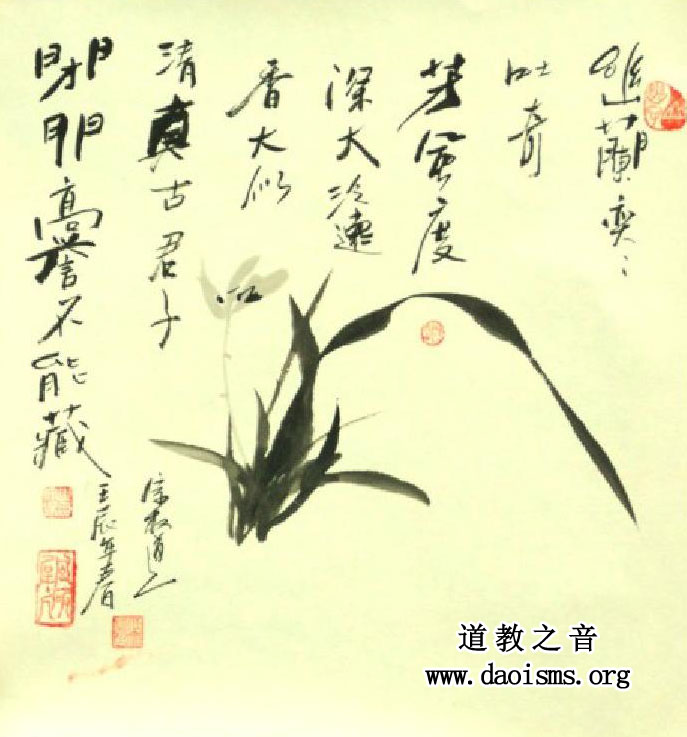 幽蘭奕々
吐奇
芳風度
深大冷遠
香大似
清真古君子
閉門高譽不能藏
壬辰年春
道教之音
www.daoisms.org